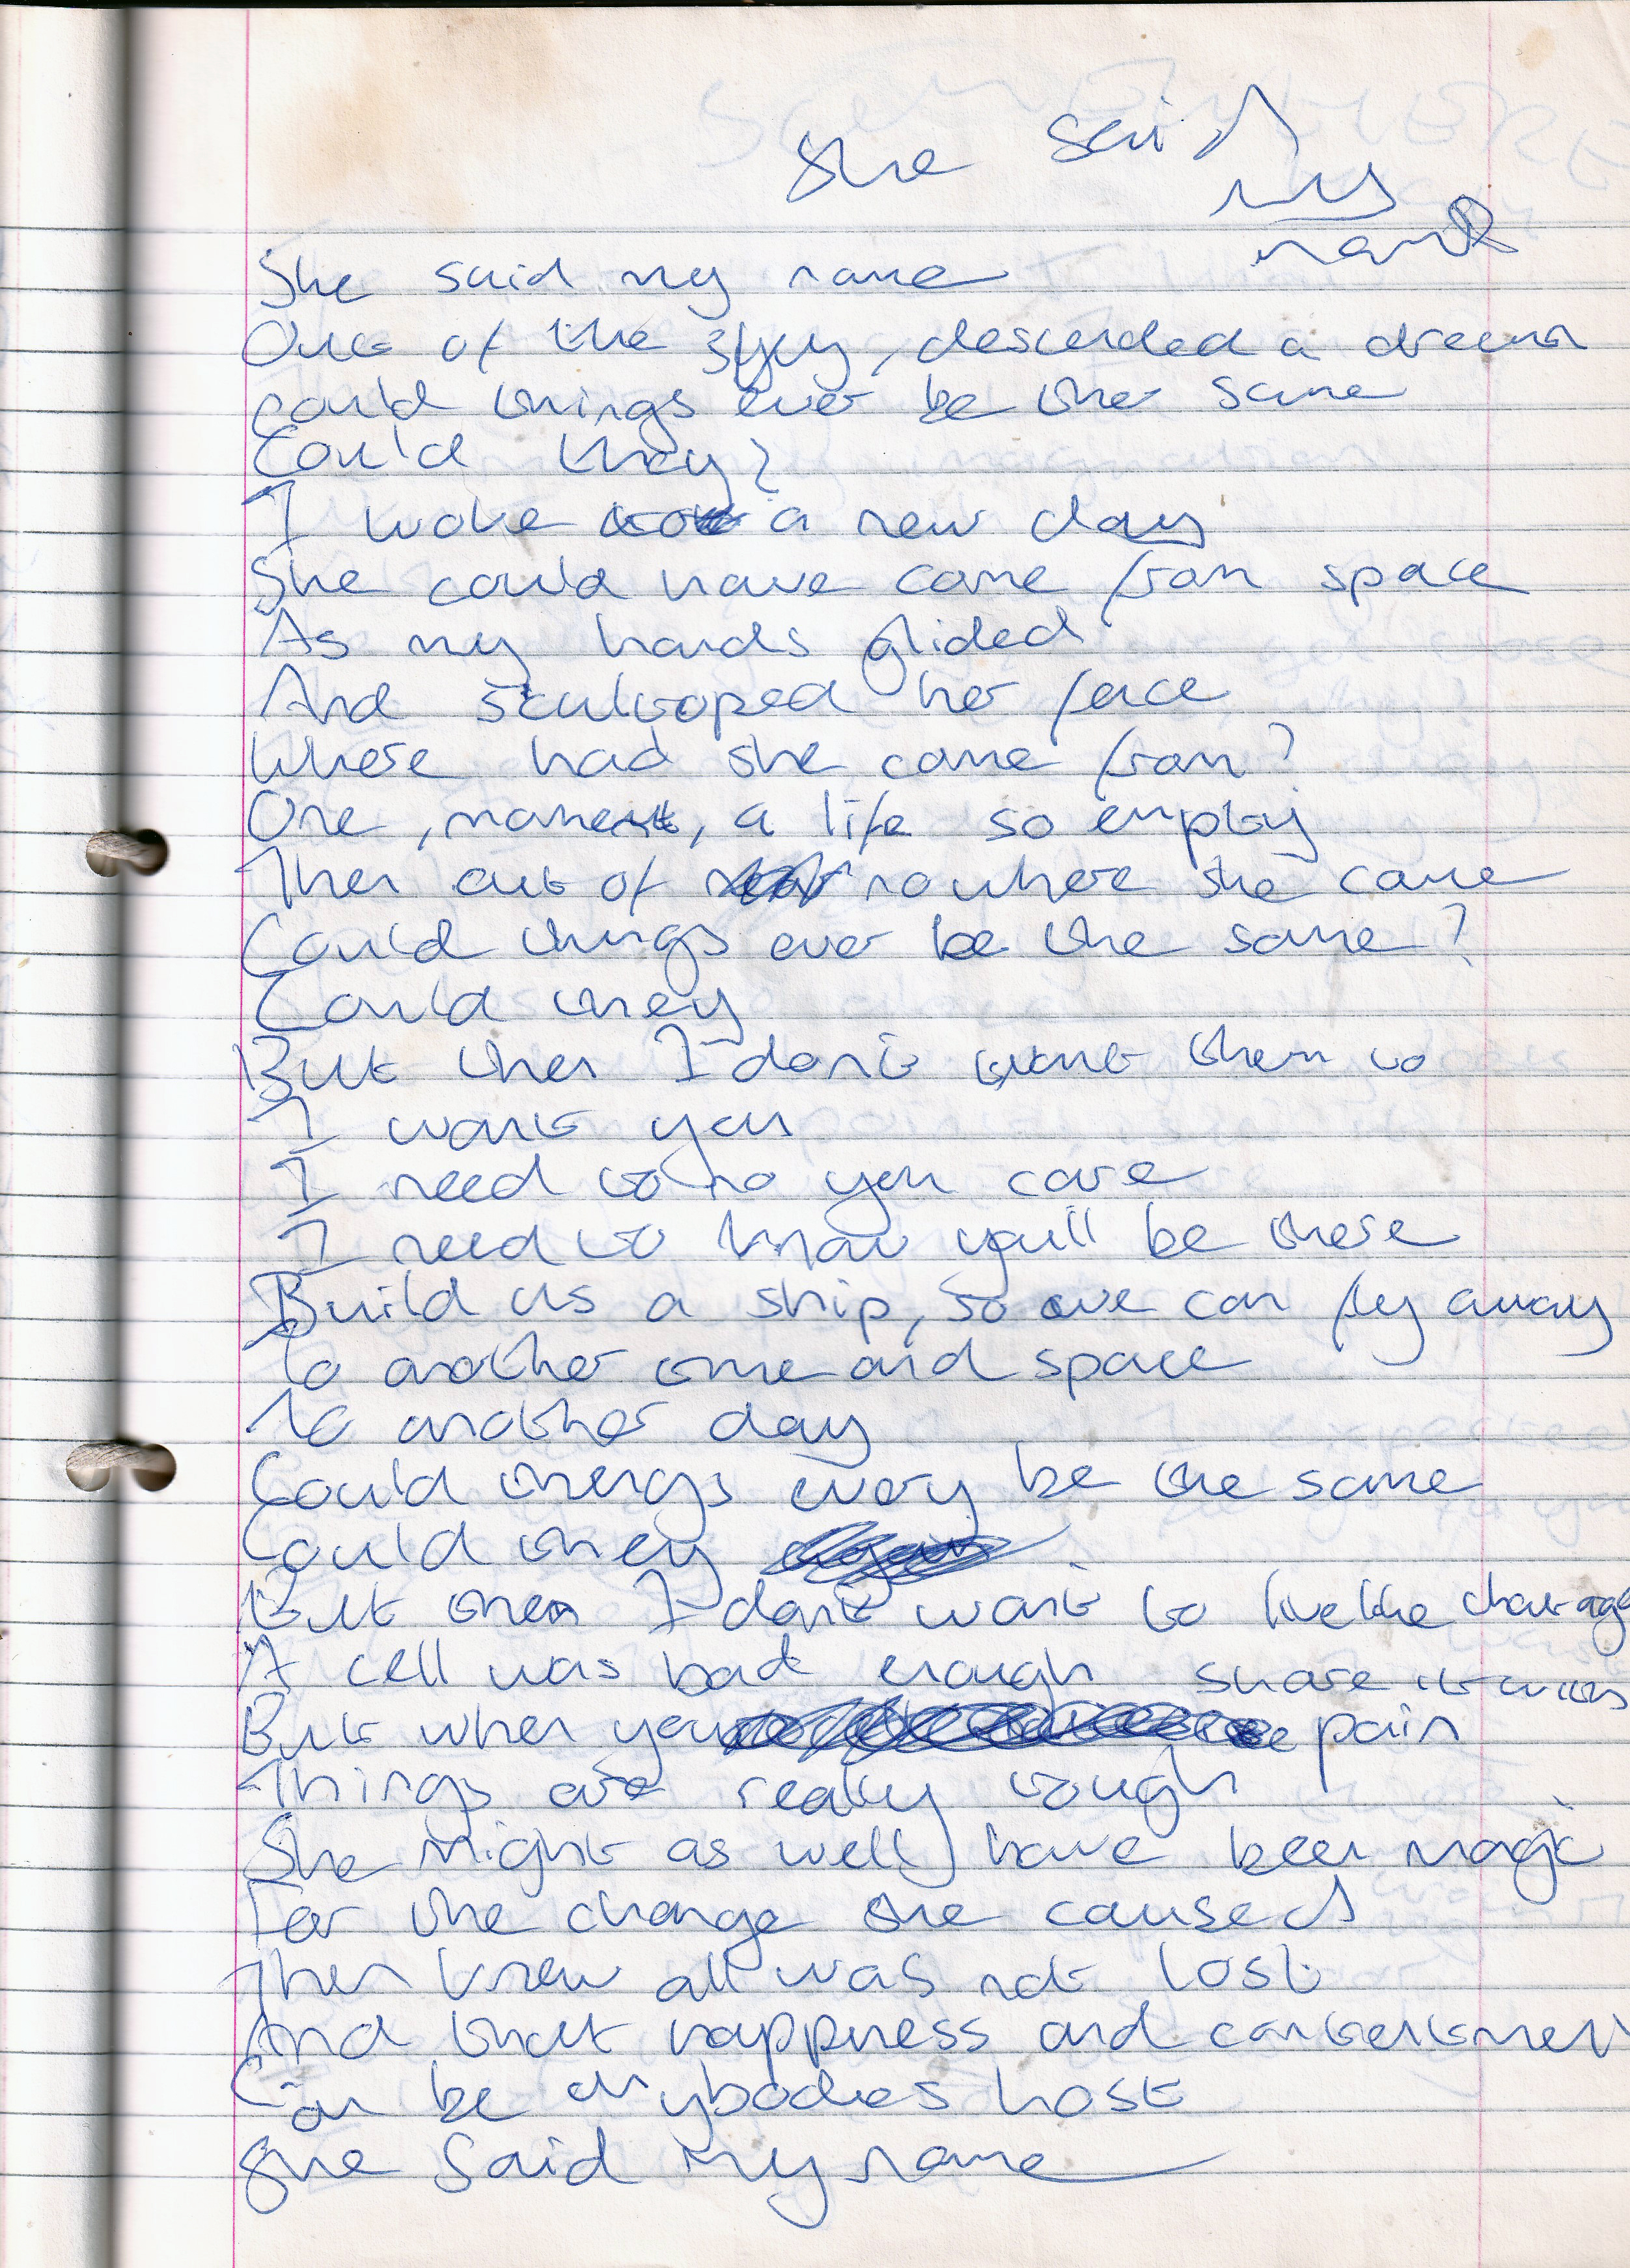 She said
my
name
She said my name
Out of the sky, descended a dream
could things ever be ther same
Could they?
I woke a new day
She could have come from space
As my hands glided
And scultoped her face
Where had she come from?
One, moment, a life so empty
Then out of nowhere she came
Could things ever be the same?
Could they
But then I don't want them to
I want you
I need to no you care
I need to know you'll be there
Build us a ship, so we can fly away
To another time and space
To another day
Could things every be the same
Could they
But then I don't want to live the
A cell was bad enough share it with
But when you pain
Things are really tough
She might as well have been magic
For the change she caused
Then knew all was not lost
And that happiness and contentment
Can be anybodies host
She said my name